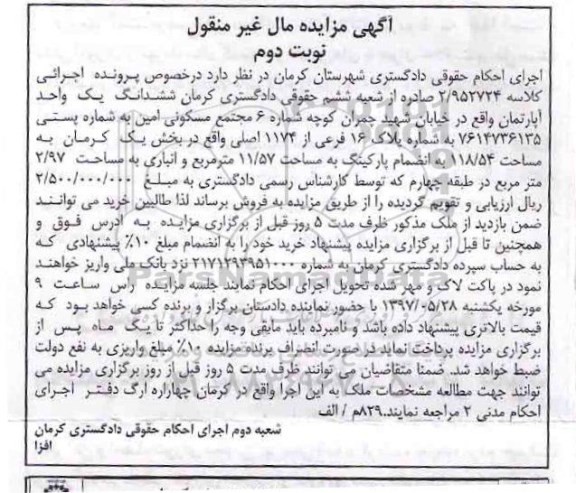 آگهی مزایده مال غیر منقول
نوبت دوم
اجرای احکام حقوقی دادگستری شهرستان کرمان در نظر دارد درخصوص پرونده اجرائی
کلاسه ۲/۹۵۲۷۲۴ صادره از شعبه ششم حقوقی دادگستری کرمان ششدانگ یک واحد
آپارتمان واقع در خیابان شهید چمران کوچه شماره ۶ مجتمع مسکونی امین به شماره پستی
۷۶۱۴۷۳۶۱۳۵ به شماره پلاک ۱۶ فرعی از ۱۱۷۴ اصلی واقع در بخش یک کرمان به
مساحت ۱۱۸/۵۴ به انضمام پارکینگ به مساحت ۱۱/۵۷ مترمربع و انباری به مساحت ۲/۹۷
متر مربع در طبقه چهارم که توسط کارشناس رسمی دادگستری به مبلغ ۲/۵۰۰/۰۰۰/۰۰۰
ریال ارزیابی و تقویم گردیده را از طریق مزایده به فروش برساند لذا طالبین خرید می توانند
ضمن بازدید از ملک مذکور ظرف مدت ۵ روز قبل از برگزاری مزایده به آدرس فوق و
همچنین تا قبل از برگزاری مزایده پیشنهاد خرید خود را به انضمام مبلغ ۱۰٪ پیشنهادی که
به حساب سپرده دادگستری کرمان به شماره ۲۱۷۱۲۹۳۹۵۱۰۰۰ نزد بانک ملی واریز خواهند
نمود در پاکت لاک و مهر شده تحویل اجرای احکام نمایند جلسه مزایده راس ساعت ۹
مورخه یکشنبه ۱۳۹۷/۰۵/۲۸ با حضور نماینده دادستان برگزار و برنده کسی خواهد بود که
قیمت بالاتری پیشنهاد داده باشد و نامبرده باید مابقی وجه را حداکثر تا یک ماه پس از
برگزاری مزایده پرداخت نماید در صورت انصراف برنده مزایده ۱۰٪ مبلغ واریزی به نفع دولت
ضبط خواهد شد. ضمنا متقاضیان می توانند ظرف مدت ۵ روز قبل از روز برگزاری مزایده می
توانند جهت مطالعه مشخصات ملک به این اجرا واقع در کرمان چهارراه ارگ دفتر اجرای
احکام مدنی ۲ مراجعه نمایند.۸۳۹م / الف
شعبه دوم اجرای احکام حقوقی دادگستری کرمان
افزا